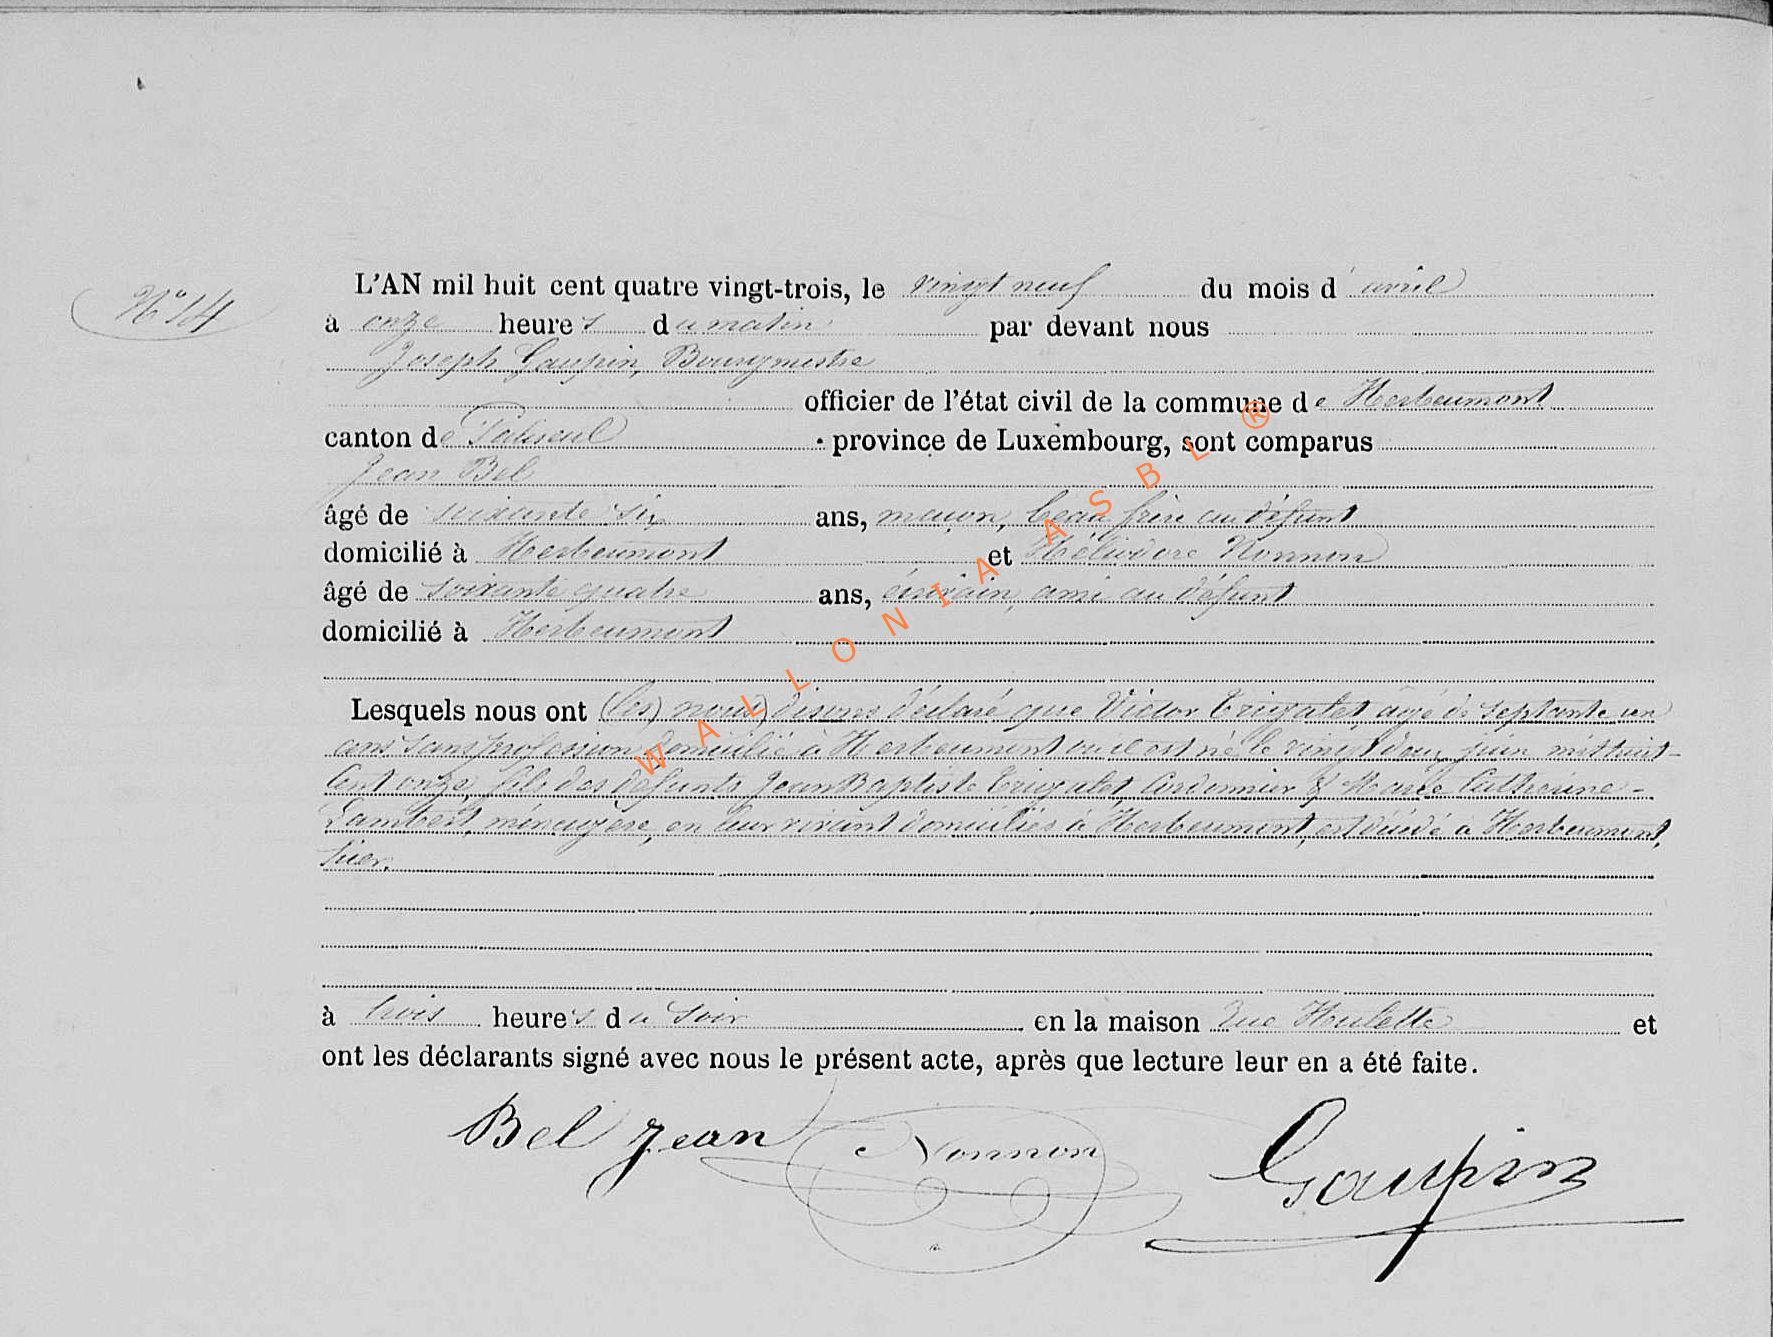 N° 14
L'AN mil huit cent quatre vingt-trois, le vingt neuf du mois d'avril
à onze heures du matin par devant nous
Joseph Gaupin, Bourgmestre
officier de l'état civil de la commune de Herbeumont
canton de Paliseul province de Luxembourg, sont comparus
Jean Bel
âgé de soixante six ans, maçon, beau frère au défunt
domicilié à Herbeumont et Héliodore Nonnon
âgé de soixante quatre ans, écrivain, ami au défunt
domicilié à Herbeumont
Lesquels nous ont (les) nous) disons déclaré que Victor Trigalet, âgé de septante un
ans sans profession domicilié à Herbeumont où il est né le vingt deux juin mil huit-
cent onze, fils des défunts Jean Baptiste Trigalet Cordonnier & Marie Catherine -
Lambert, ménagère, en leur vivant domiciliés à Herbeumont, est décédé à Herbeumont,
hier.
à trois heures du soir en la maison rue Hulette et
ont les déclarants signé avec nous le présent acte, après que lecture leur en a été faite.
Bel Jean Nonnon Gaupin
WALLONIA ASBL ®